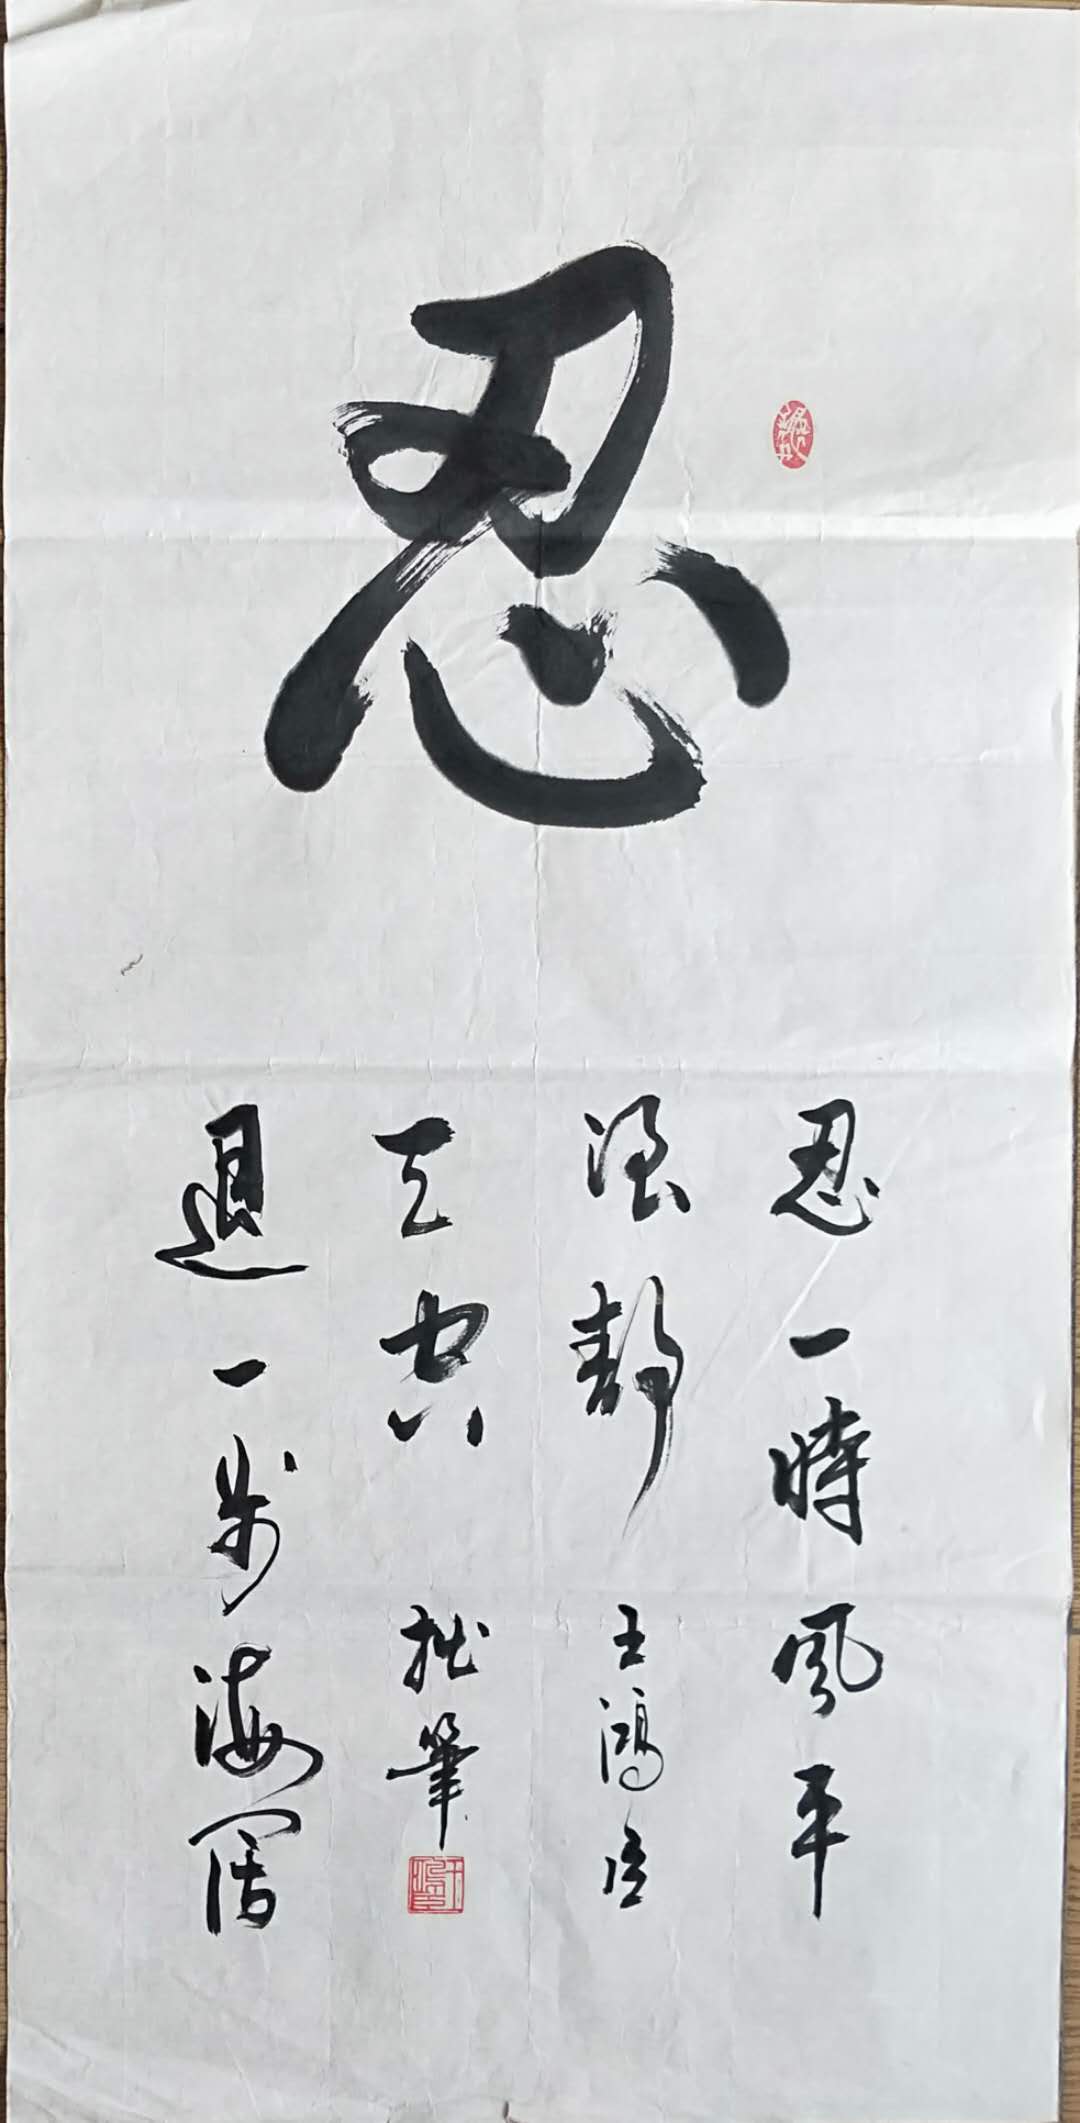 忍
忍一時風平
浪靜 王鴻
天空 拙筆
退一步海闊